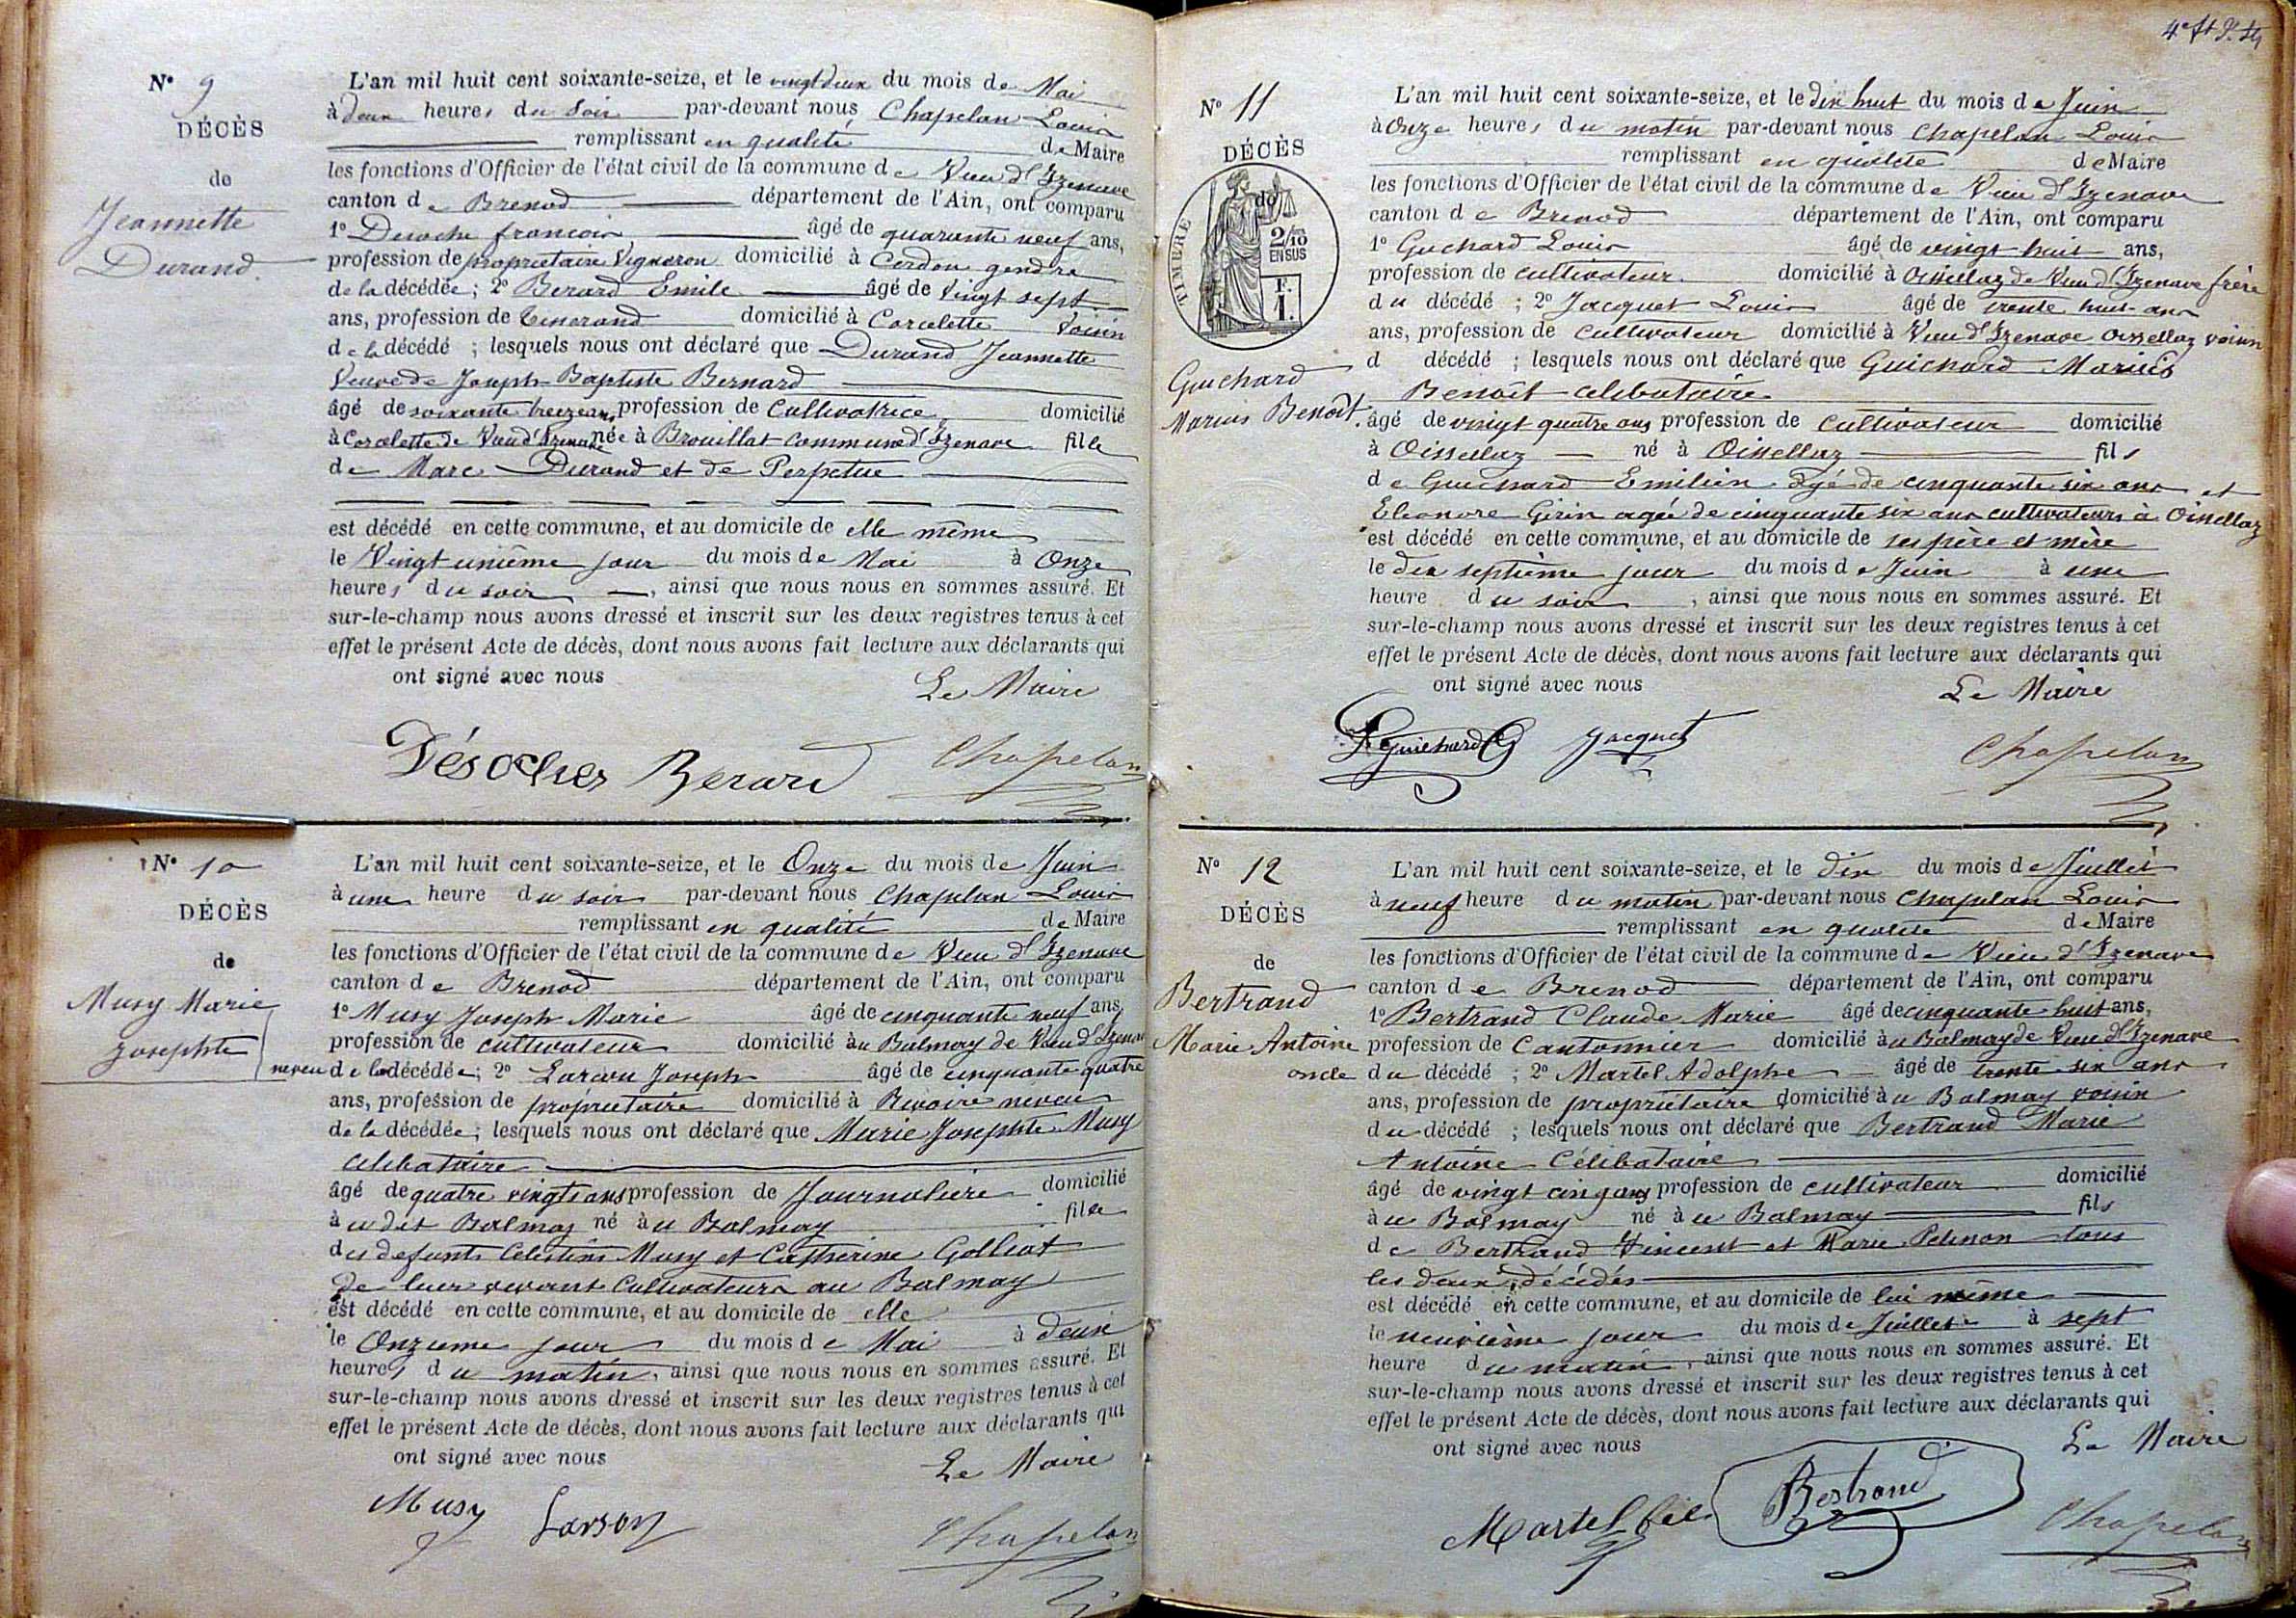 N° 9
DÉCÈS
de
Jeannette
Durand.
L'an mil huit cent soixante-seize, et le vingt deux du mois de Mai
à deux heures du Soir par-devant nous Chapelan Louis
remplissant en qualité de Maire
les fonctions d'Officier de l'état civil de la commune de Vieu d'Izenave
canton de Brenod département de l'Ain, ont comparu
1° Deroche francois âgé de quarante neuf ans,
profession de proprietaire Vigneron domicilié à Cerdon gendre
de la décédée ; 2° Berard Emile âgé de Vingt sept
ans, profession de Tisserand domicilié à Corcelette Voisin
de la décédé ; lesquels nous ont déclaré que Durand Jeannette
Veuve de Joseph Baptiste Bernard
âgé de soixante treize ans, profession de Cultivatrice domicilié
à Corcelette de Vieu d'Izenave née à Brouillat commune d'Izenave fille
de Marc Durand et de Perpetue
est décédé en cette commune, et au domicile de elle même
le Vingt unième jour du mois de Mai à Onze
heures du soir, ainsi que nous nous en sommes assuré. Et
sur-le-champ nous avons dressé et inscrit sur les deux registres tenus à cet
effet le présent Acte de décès, dont nous avons fait lecture aux déclarants qui
ont signé avec nous Le Maire
Désocher Berard Chapelan
N° 10
DÉCÈS
de
Musy Marie
josephte
L'an mil huit cent soixante-seize, et le Onze du mois de Juin
à une heure du soir par-devant nous Chapelan Louis
remplissant en qualité de Maire
les fonctions d'Officier de l'état civil de la commune de Vieu d'Izenave
canton de Brenod département de l'Ain, ont comparu
1° Musy Joseph Marie âgé de cinquante neuf ans,
profession de cultivateur domicilié au Balmay de Vieu d'Izenave
neveu de la décédée ; 2° Larson Joseph âgé de cinquante quatre
ans, profession de proprietaire domicilié à Rivoire neveu
de la décédée ; lesquels nous ont déclaré que Marie Josephte Musy
celibataire
âgé de quatre vingts ans profession de Journaliere domicilié
audit Balmay né au Balmay fille
des defunts Celestins Musy et Catherine Golliat
de leur vivant Cultivateurs au Balmay
est décédé en cette commune, et au domicile de elle
le Onzieme jour du mois de Mai à deux
heures du matin, ainsi que nous nous en sommes assuré. Et
sur-le-champ nous avons dressé et inscrit sur les deux registres tenus à cet
effet le présent Acte de décès, dont nous avons fait lecture aux déclarants qui
ont signé avec nous Le Maire
Musy Larson Chapelan
N° 11
DÉCÈS
de
TIMBRE
2/10
EN SUS
F.
1.
Guichard
Marius Benoît.
L'an mil huit cent soixante-seize, et le dix huit du mois de Juin
à Onze heures du matin par-devant nous Chapelan Louis
remplissant en qualité de Maire
les fonctions d'Officier de l'état civil de la commune de Vieu d'Izenave
canton de Brenod département de l'Ain, ont comparu
1° Guichard Louis âgé de vingt huit ans,
profession de cultivateur domicilié à Oissellaz de Vieu d'Izenave frère
du décédé ; 2° Jacquet Louis âgé de trente huit ans
ans, profession de Cultivateur domicilié à Vieu d'Izenave Oissellaz voisin
d décédé ; lesquels nous ont déclaré que Guichard Marius
Benoît celibataire
âgé de vingt quatre ans profession de cultivateur domicilié
à Oissellaz né à Oissellaz fils
de Guichard Emilien âgé de cinquante six ans et
Eleonore Girin agée de cinquante six ans cultivateurs à Oissellaz
est décédé en cette commune, et au domicile de ses père et mère
le dix septième jour du mois de Juin à une
heure du soir, ainsi que nous nous en sommes assuré. Et
sur-le-champ nous avons dressé et inscrit sur les deux registres tenus à cet
effet le présent Acte de décès, dont nous avons fait lecture aux déclarants qui
ont signé avec nous Le Maire
Guichard Jacquet Chapelan
N° 12
DÉCÈS
de
Bertrand
Marie Antoine
L'an mil huit cent soixante-seize, et le dix du mois de Juillet
à neuf heure du matin par-devant nous Chapelan Louis
remplissant en qualité de Maire
les fonctions d'Officier de l'état civil de la commune de Vieu d'Izenave
canton de Brenod département de l'Ain, ont comparu
1° Bertrand Claude Marie âgé de cinquante huit ans,
profession de Cantonnier domicilié au Balmay de Vieu d'Izenave
oncle du décédé ; 2° Martel Adolphe âgé de trente six ans
ans, profession de propriétaire domicilié au Balmay voisin
du décédé ; lesquels nous ont déclaré que Bertrand Marie
Antoine Célibataire
âgé de vingt cinq ans profession de cultivateur domicilié
au Balmay né au Balmay fils
de Bertrand Vincent et Marie tous
les deux décédés
est décédé en cette commune, et au domicile de lui même
le neuvième jour du mois de Juillet à sept
heure du matin, ainsi que nous nous en sommes assuré. Et
sur-le-champ nous avons dressé et inscrit sur les deux registres tenus à cet
effet le présent Acte de décès, dont nous avons fait lecture aux déclarants qui
ont signé avec nous Le Maire
Martel fils Bertrand Chapelan